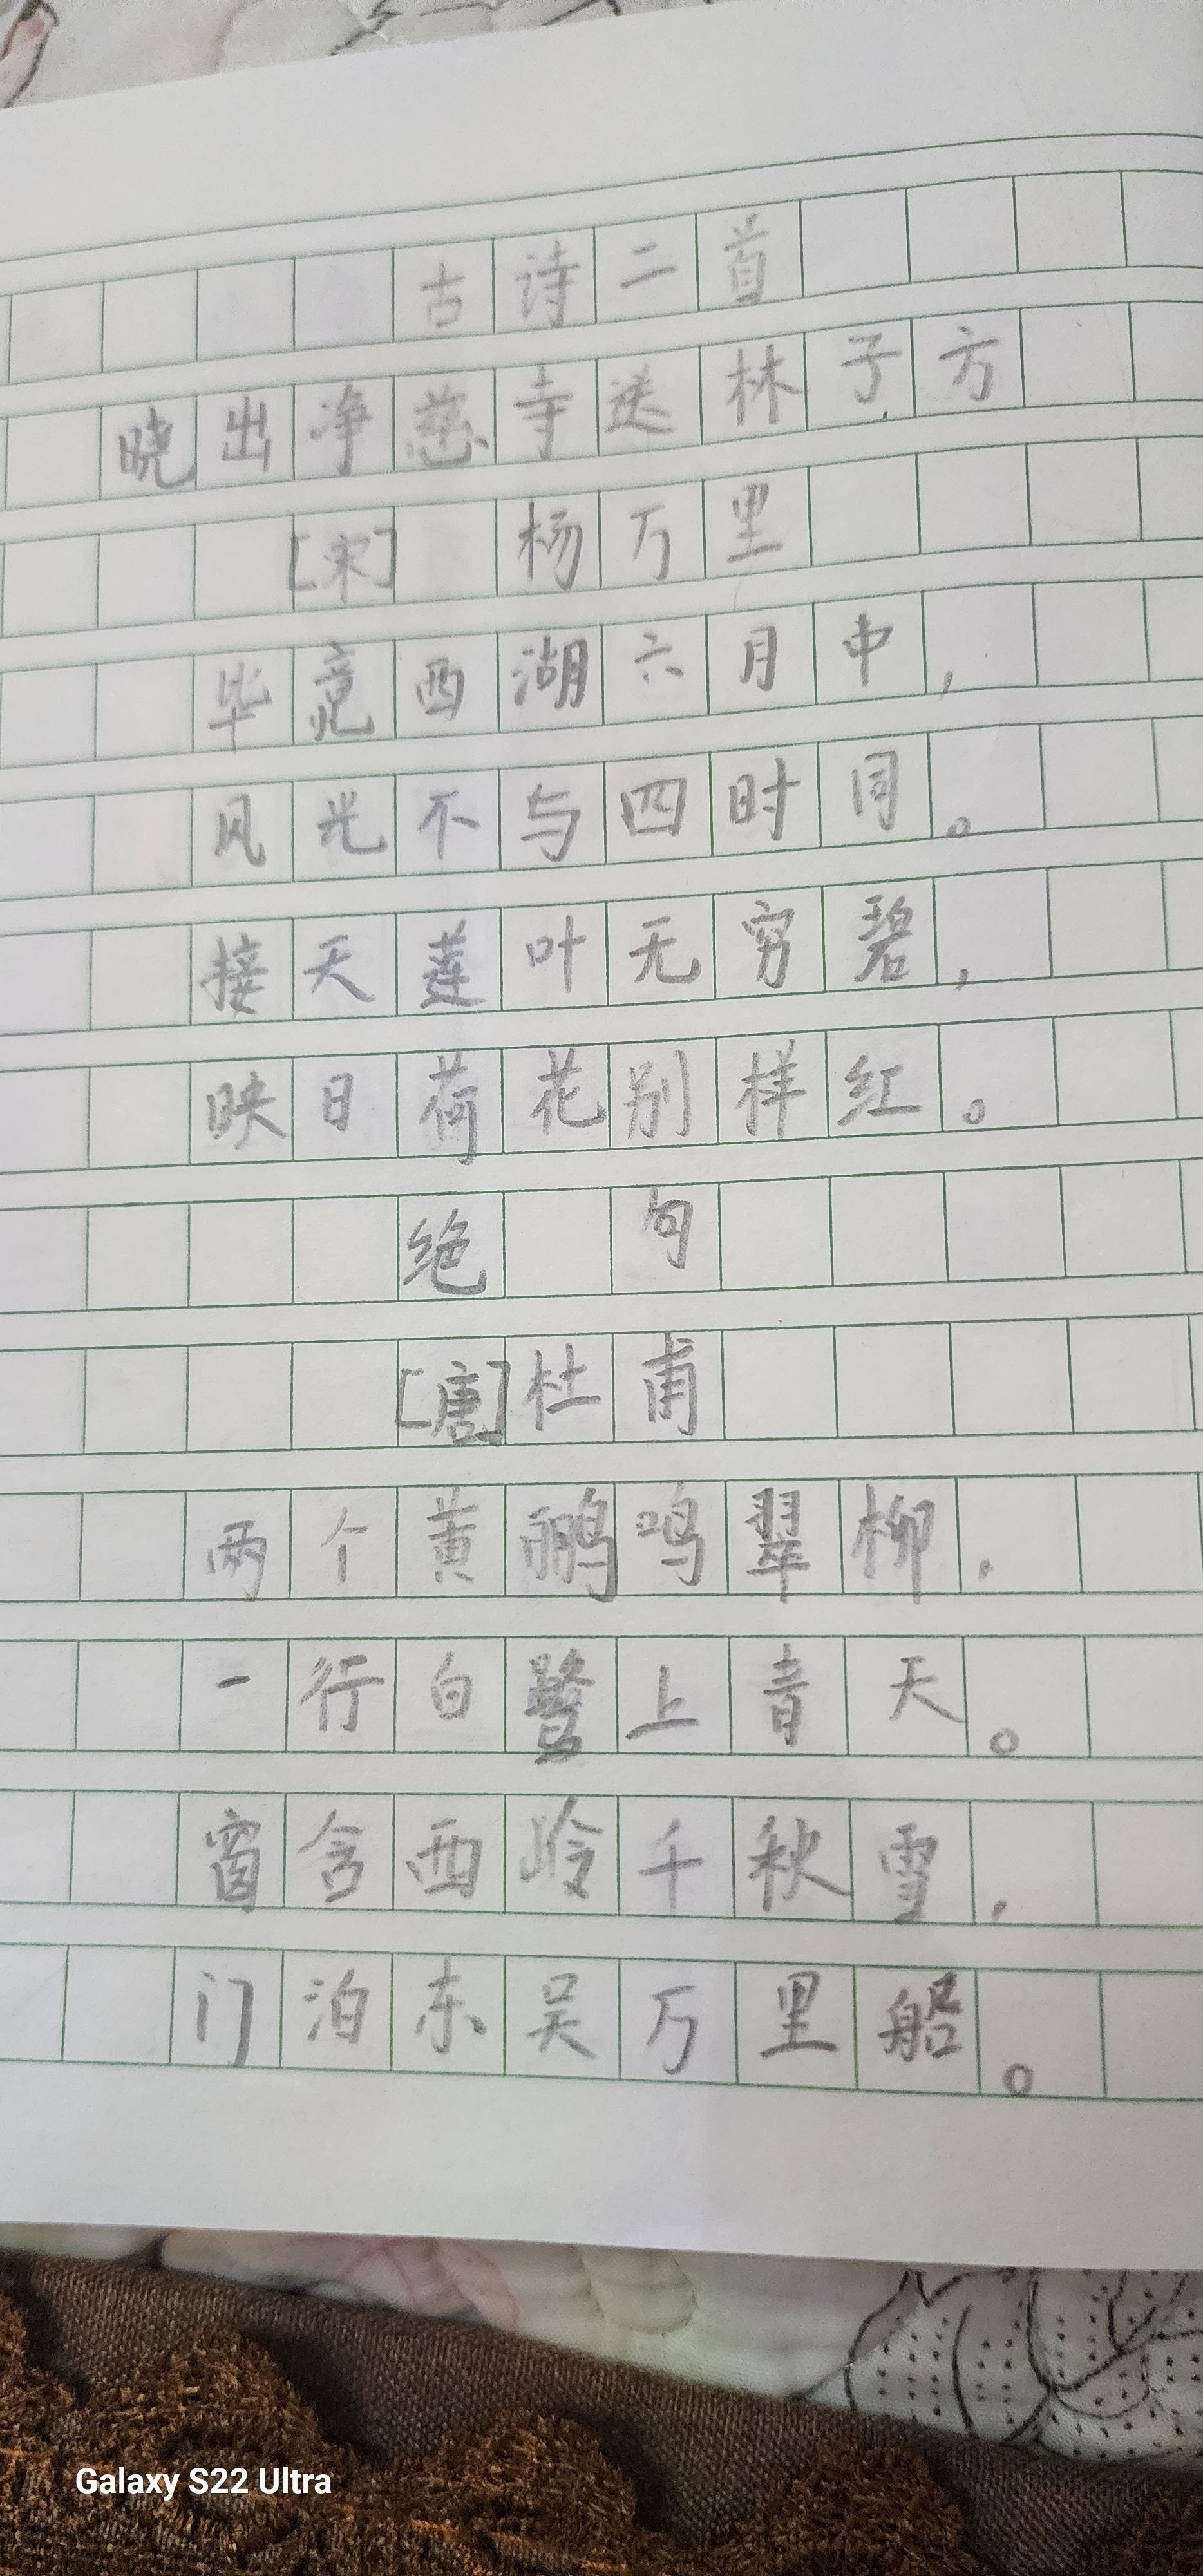 古诗二首
晓出净慈寺送林子方
[宋] 杨万里
毕竟西湖六月中，
风光不与四时同。
接天莲叶无穷碧，
映日荷花别样红。
绝 句
[唐]杜甫
两个黄鹂鸣翠柳，
一行白鹭上音天。
窗含西岭千秋雪，
门泊东吴万里船。
Galaxy S22 Ultra